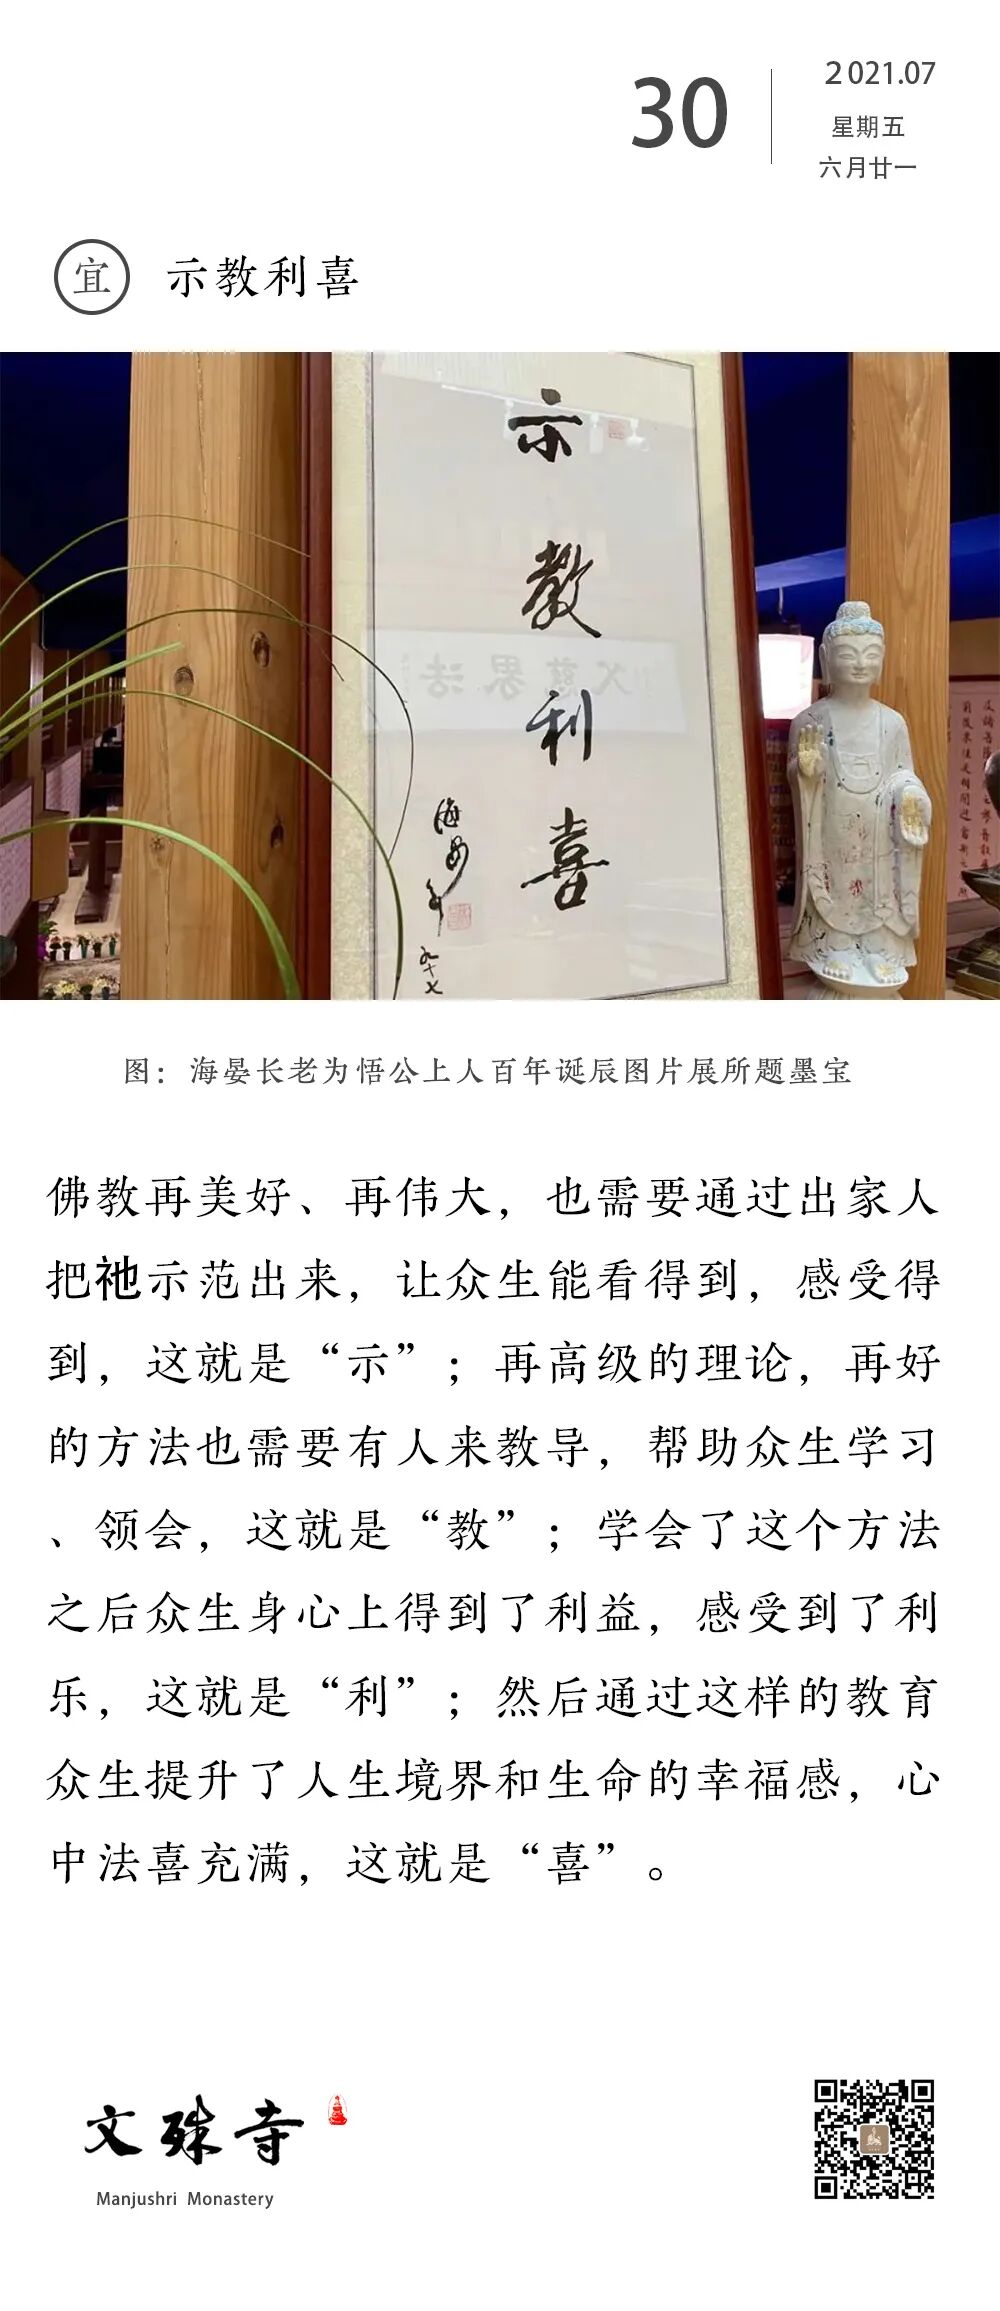 30
2021.07
星期五
六月廿一
宜 示教利喜
示教利喜
九十七
图：海晏长老为悟公上人百年诞辰图片展所题墨宝
佛教再美好、再伟大，也需要通过出家人
把祂示范出来，让众生能看得到，感受得
到，这就是“示”；再高级的理论，再好
的方法也需要有人来教导，帮助众生学习
、领会，这就是“教”；学会了这个方法
之后众生身心上得到了利益，感受到了利
乐，这就是“利”；然后通过这样的教育
众生提升了人生境界和生命的幸福感，心
中法喜充满，这就是“喜”。
文殊寺
Manjushri Monastery